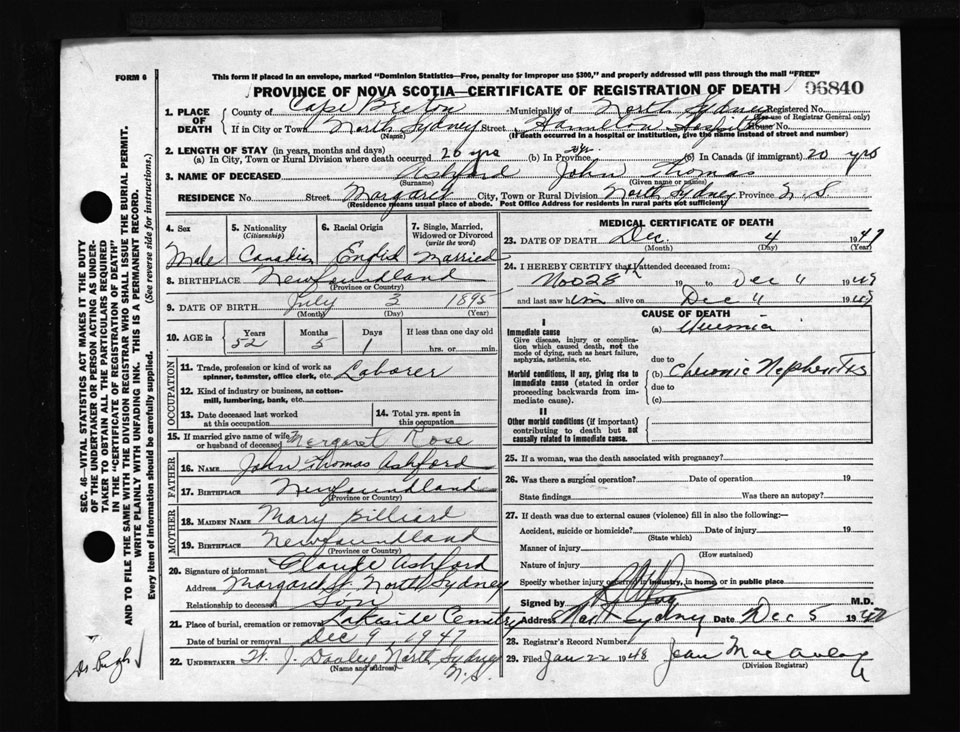 This form if placed in an envelope, marked "Dominion Statistics—Free, penalty for improper use $300," and properly addressed will pass through the mail "FREE"
FORM 6
PROVINCE OF NOVA SCOTIA—CERTIFICATE OF REGISTRATION OF DEATH 06840
1. PLACE OF DEATH County of Cape Breton Municipality of North Sydney Registered No.
(For use of Registrar General only)
If in City or Town North Sydney Street Hamilton Hospital House No.
(Name) (If death occurred in a hospital or institution, give the name instead of street and number)
2. LENGTH OF STAY (in years, months and days)
(a) In City, Town or Rural Division where death occurred 20 yrs (b) In Province (c) In Canada (if immigrant) 20 yrs
3. NAME OF DECEASED Ashford John Thomas
(Surname) (Given name or names)
RESIDENCE No. Street Margaret City, Town or Rural Division North Sydney Province N.S.
(Residence means usual place of abode. Post Office Address for residents in rural parts not sufficient)
4. Sex 5. Nationality (Citizenship) 6. Racial Origin 7. Single, Married, Widowed or Divorced (write the word)
Male Canadian English Married
8. BIRTHPLACE Newfoundland
(Province or Country)
9. DATE OF BIRTH July 3 1895
(Month) (Day) (Year)
10. AGE in Years Months Days If less than one day old
52 5 1 hrs. or min.
OCCUPATION
11. Trade, profession or kind of work as spinner, teamster, office clerk, etc. Laborer
12. Kind of industry or business, as cotton-mill, lumbering, bank, etc.
13. Date deceased last worked at this occupation
14. Total yrs. spent in this occupation
15. If married give name of wife or husband of deceased Margaret Rose
FATHER
16. NAME John Thomas Ashford
17. BIRTHPLACE Newfoundland
(Province or Country)
MOTHER
18. MAIDEN NAME Mary Billiard
19. BIRTHPLACE Newfoundland
(Province or Country)
20. Signature of informant Claude Ashford
Address Margaret St. North Sydney
Relationship to deceased Son
21. Place of burial, cremation or removal Lakeside Cemetry
Date of burial or removal Dec 9, 1947
22. UNDERTAKER J. Dooley North Sydney
(Name and address) N.S.
MEDICAL CERTIFICATE OF DEATH
23. DATE OF DEATH Dec. 4 1947
(Month) (Day) (Year)
24. I HEREBY CERTIFY that I attended deceased from:
Nov 28 19 to Dec 4 1947
and last saw him alive on Dec 4 1947
CAUSE OF DEATH
I
Immediate cause (a) Uremia
Give disease, injury or complication which caused death, not the mode of dying, such as heart failure, asphyxia, asthenia, etc.
due to
Morbid conditions, if any, giving rise to immediate cause (stated in order proceeding backwards from immediate cause). (b) Chronic Nephritis
due to
(c)
II
Other morbid conditions (if important) contributing to death but not causally related to immediate cause.
25. If a woman, was the death associated with pregnancy?
26. Was there a surgical operation? Date of operation 19
State findings Was there an autopsy?
27. If death was due to external causes (violence) fill in also the following:—
Accident, suicide or homicide? Date of injury 19
(State which)
Manner of injury
(How sustained)
Nature of injury
Specify whether injury occurred in industry, in home, or in public place
Signed by M.D.
Address North Sydney Date Dec 5 1947
28. Registrar's Record Number
29. Filed Jan 22 1948 Jean MacAulay
(Division Registrar)
SEC. 46—VITAL STATISTICS ACT MAKES IT THE DUTY
OF THE UNDERTAKER OR PERSON ACTING AS UNDER-
TAKER TO OBTAIN ALL THE PARTICULARS REQUIRED
IN THE "CERTIFICATE OF REGISTRATION OF DEATH"
AND TO FILE THE SAME WITH THE DIVISION REGISTRAR WHO SHALL ISSUE THE BURIAL PERMIT.
WRITE PLAINLY WITH UNFADING INK. THIS IS A PERMANENT RECORD.
Every item of information should be carefully supplied. (See reverse side for instructions.)